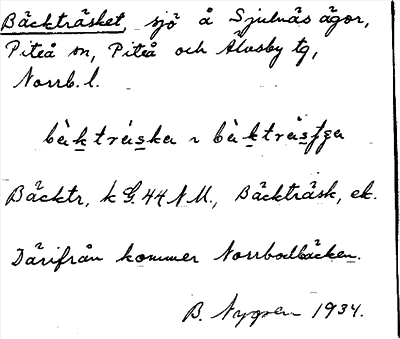 Bäckträsket, sjö å Sjulnäs ägor,
Piteå sn, Piteå och Älvsby tg,
Norrb. l.
bäkträska ~ bäkträsfga
Bäcktr. k G. 44 N.M., Bäckträsk, ek.
Därifrån kommer Norrbodbäcken.
B. Nygren 1934.